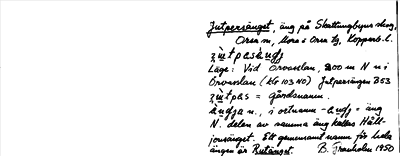 Jutpersänget, äng på Skattungbyns skog,
Orsa sn, Mora o Orsa tg, Kopparb. l.
Läge: Vid Orvasslan, 200 m N n i
Orvasslan (KG 103 NO) Jutpersängen B53
= gårdsnamn.
n., i ortnamn = äng
N. delen av samma äng kallas Håll-
jonsänget. Ett gemensamt namn för hela
ängen är Rutänget. B. 1950